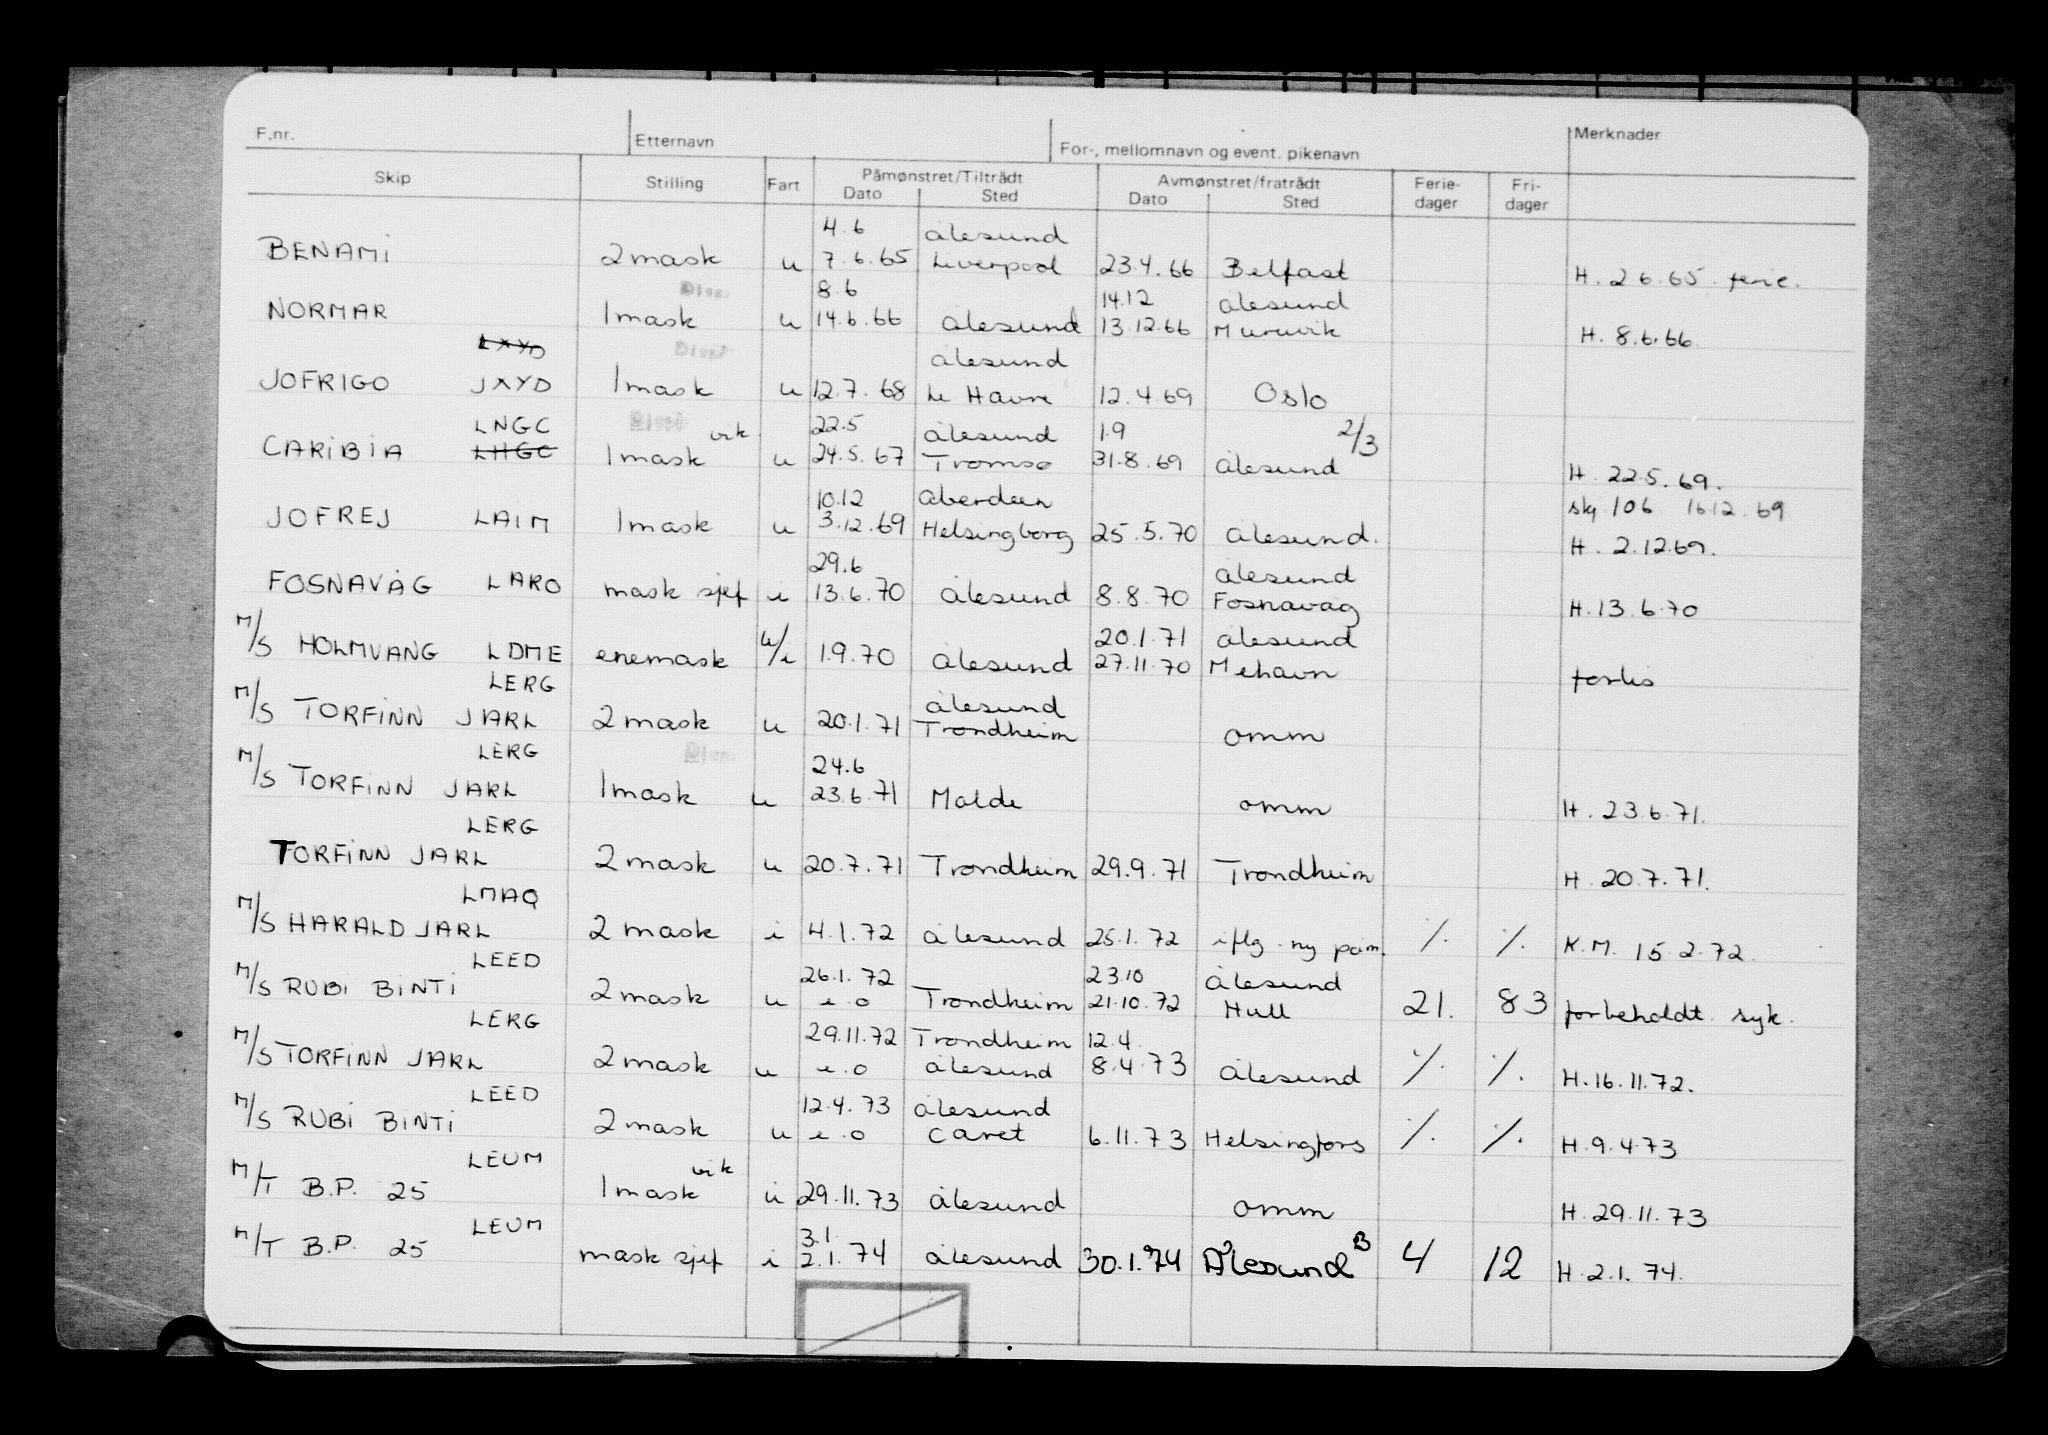 F.nr. Etternavn For-, mellomnavn og event. pikenavn Merknader
Skip Stilling Fart Påmønstret/Tiltrådt Avmønstret/fratrådt Ferie- Fri-
Dato Sted Dato Sted dager dager
4.6 Ålesund
BENAMI 2 mask u 7.6.65 Liverpool 23.4.66 Belfast H. 2.6.65. ferie.
8.6 14.12 Ålesund
NORMAR 1 mask u 14.6.66 Ålesund 13.12.66 Muruvik H. 8.6.66.
LXYD Ålesund
JOFRIGO JXYD 1 mask u 12.7.68 Le Havre 12.4.69 Oslo
LNGC vik. 22.5 Ålesund 1.9 2/3
CARIBIA LHGC 1 mask u 24.5.67 Tromsø 31.8.69 Ålesund H. 22.5.69.
10.12 Aberdeen skj 106 16.12.69
JOFREJ LAIM 1 mask u 3.12.69 Helsingborg 25.5.70 Ålesund. H. 2.12.69.
29.6 Ålesund
FOSNAVÅG LARO mask sjef i 13.6.70 Ålesund 8.8.70 Fosnavåg H. 13.6.70
20.1.71 Ålesund
M/S HOLMVANG LDME enemask u/i 1.9.70 Ålesund 27.11.70 Mehavn forlis
LERG Ålesund
M/S TORFINN JARL 2 mask u 20.1.71 Trondheim omm
LERG 24.6
M/S TORFINN JARL 1 mask u 23.6.71 Molde omm H. 23.6.71.
LERG
TORFINN JARL 2 mask u 20.7.71 Trondheim 29.9.71 Trondheim H. 20.7.71.
LMAQ
M/S HARALD JARL 2 mask i 4.1.72 Ålesund 25.1.72 iflg. ny påm. ./. ./. K.M. 15.2.72.
LEED 26.1.72 23.10 Ålesund
M/S RUBI BINTI 2 mask u e.o Trondheim 21.10.72 Hull 21. 83 forbeholdt. syk.
LERG 29.11.72 Trondheim 12.4.
M/S TORFINN JARL 2 mask u e.o Ålesund 8.4.73 Ålesund ./. ./. H. 16.11.72.
LEED 12.4.73 Ålesund
M/S RUBI BINTI 2 mask u e.o Caret 6.11.73 Helsingfors ./. ./. H. 9.4.73
LEUM vik
M/T B.P. 25 1 mask i 29.11.73 Ålesund omm H. 29.11.73
LEUM 3.1
M/T B.P. 25 mask sjef i 2.1.74 Ålesund 30.1.74 Ålesund B 4 12 H. 2.1.74.